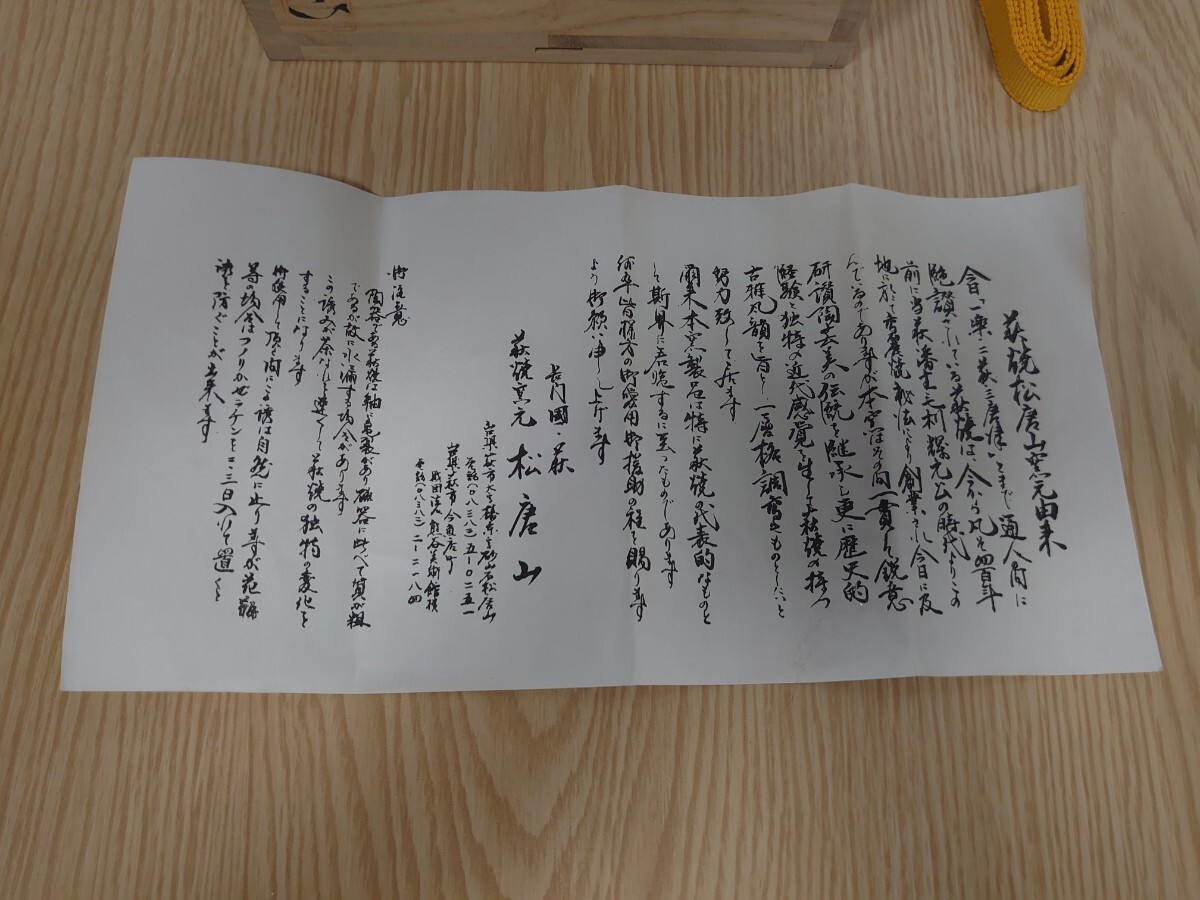 萩焼松唐山窯元由来
昔っ一楽二萩三唐津っとまで通人間に
絶讃されている萩焼は、今から凡そ四百年
前に当萩藩主毛利輝元公の時代よりこの
地に於いて高麗焼秘法により創業され今日に及
んでいるのでありますが本窯はその間一貫して鋭意
研讃陶芸美の伝統を継承し更に歴史的
経験と独特の近代感覚を生して萩焼の持つ
古雅風韻を旨とし一層格調高きものとしたいと
努力致して居ます
爾来本窯製品は特に萩焼の代表的なものと
して斯界に君臨するに至ったものであります
何卒皆様方の御愛用御援助の程を賜ります
よう御願い申し上げます
長門國・萩
萩焼窯元 松唐山
山口県萩市
電話(〇八三八二)五-〇二五一
山口県萩市今魚店町
熊谷美術館横
電話(〇八三八二)二-二一八四
御注意
陶器である萩焼は釉に亀裂があり磁器に比べて質が粗
であるが故に水漏する場合があります
この漏みが茶なれと達して萩焼の独特の変化を
することになります
御使用して頂く間にこの漏は自然に止りますが花瓶
等の場合はフノリかゼラチンを二三日入れて置くと
漏を防ぐことが出来ます